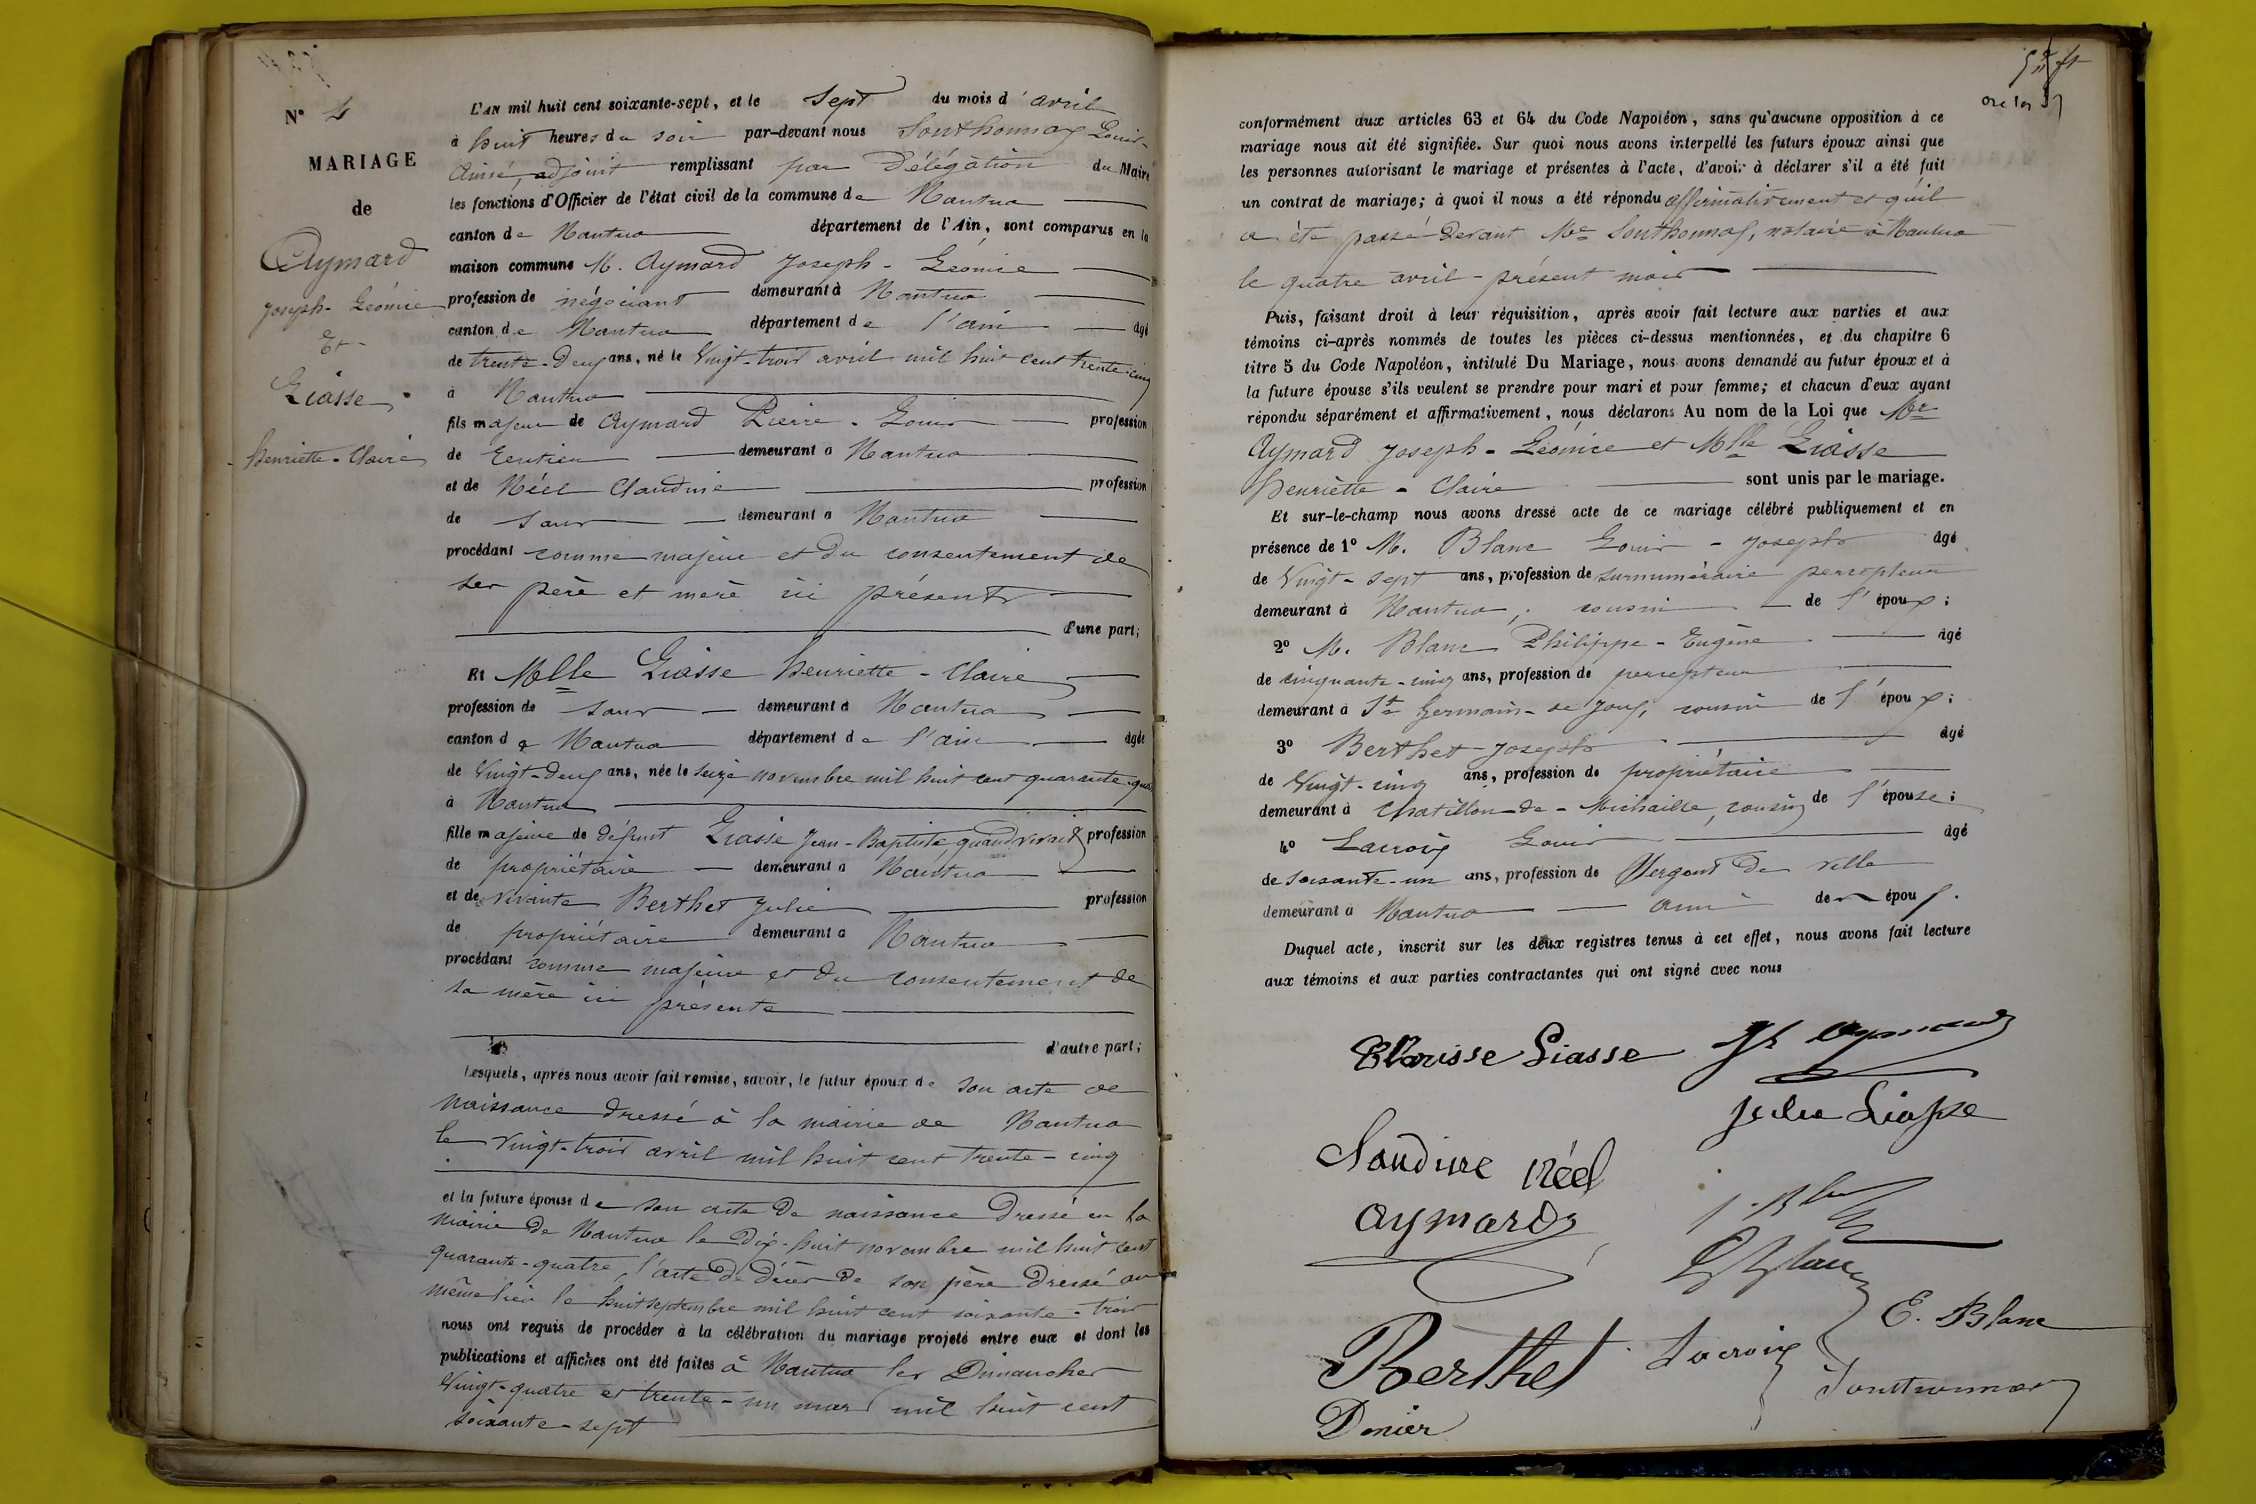 N° 4
MARIAGE
de
Aymard
Joseph-Léonice
Et
Liasse
henriette-Claire
L'AN mil huit cent soixante-sept, et le sept du mois d'avril
à huit heures du soir par-devant nous Sonthonnax Louis-
Aimé, adjoint remplissant par Délégation du Maire
les fonctions d'Officier de l'état civil de la commune de Nantua
canton de Nantua département de l'Ain, sont comparus en la
maison commune M. Aymard Joseph-Léonice
profession de négociant demeurant à Nantua
canton de Nantua département de l'ain âgé
de trente-deux ans, né le Vingt-trois avril mil huit cent trente-cinq
à Nantua
fils majeur de Aymard Pierre-Louis profession
de rentier demeurant à Nantua
et de Néel Claudine profession
de sans demeurant à Nantua
procédant comme majeur et du consentement de
ses père et mère ici présents
d'une part;
Et Melle Liasse henriette-Claire
profession de sans demeurant à Nantua
canton de Nantua département de l'ain âgée
de Vingt-deux ans, née le seize novembre mil huit cent quarante-qua
à Nantua
fille majeure de défunt Liasse Jean-Baptiste, quand vivait profession
de propriétaire demeurant à Nantua
et de vivante Berthet Julie profession
de propriétaire demeurant à Nantua
procédant comme majeure et du consentement de
sa mère ici présente
d'autre part;
Lesquels, après nous avoir fait remise, savoir, le futur époux de son acte de
naissance dressé à la mairie de Nantua
le Vingt-trois avril mil huit cent trente-cinq
et la future épouse de son acte de naissance dressé en la
mairie de Nantua le Dix-huit novembre mil huit cent
quarante-quatre, l'acte de décès de son père dressé au
même lieu le huit septembre mil huit cent soixante-trois
nous ont requis de procéder à la célébration du mariage projeté entre eux et dont les
publications et affiches ont été faites à Nantua les Dimanches
Vingt-quatre et trente-un mars mil huit cent
soixante-sept
conformément aux articles 63 et 64 du Code Napoléon, sans qu'aucune opposition à ce
mariage nous ait été signifiée. Sur quoi nous avons interpellé les futurs époux ainsi que
les personnes autorisant le mariage et présentes à l'acte, d'avoir à déclarer s'il a été fait
un contrat de mariage; à quoi il nous a été répondu affirmativement et qu'il
a été passé devant Me Sonthonnax, notaire à Nantua
le quatre avril présent mois
Puis, faisant droit à leur réquisition, après avoir fait lecture aux parties et aux
témoins ci-après nommés de toutes les pièces ci-dessus mentionnées, et du chapitre 6
titre 5 du Code Napoléon, intitulé Du Mariage, nous avons demandé au futur époux et à
la future épouse s'ils veulent se prendre pour mari et pour femme; et chacun d'eux ayant
répondu séparément et affirmativement, nous déclarons Au nom de la Loi que Mr
Aymard Joseph-Léonice et Mlle Liasse
henriette-Claire sont unis par le mariage.
Et sur-le-champ nous avons dressé acte de ce mariage célébré publiquement et en
présence de 1° M. Blanc Louis-Joseph âgé
de Vingt-sept ans, profession de surnuméraire percepteur
demeurant à Nantua, cousin de l'époux;
2° M. Blanc Philippe-Eugène âgé
de cinquante-cinq ans, profession de percepteur
demeurant à St Germain-de Joux, cousin de l'époux;
3° Berthet Joseph âgé
de Vingt-cinq ans, profession de propriétaire
demeurant à Chatillon-de-Michaille, cousin de l'épouse;
4° Lacroix Louis âgé
de soixante-un ans, profession de Sergent de ville
demeurant à Nantua ami de épou
Duquel acte, inscrit sur les deux registres tenus à cet effet, nous avons fait lecture
aux témoins et aux parties contractantes qui ont signé avec nous
Clarisse Liasse
Julie Liasse
Claudine Néel
Aymard
E. Blanc
Berthet
Lacroix
Sonthonnax